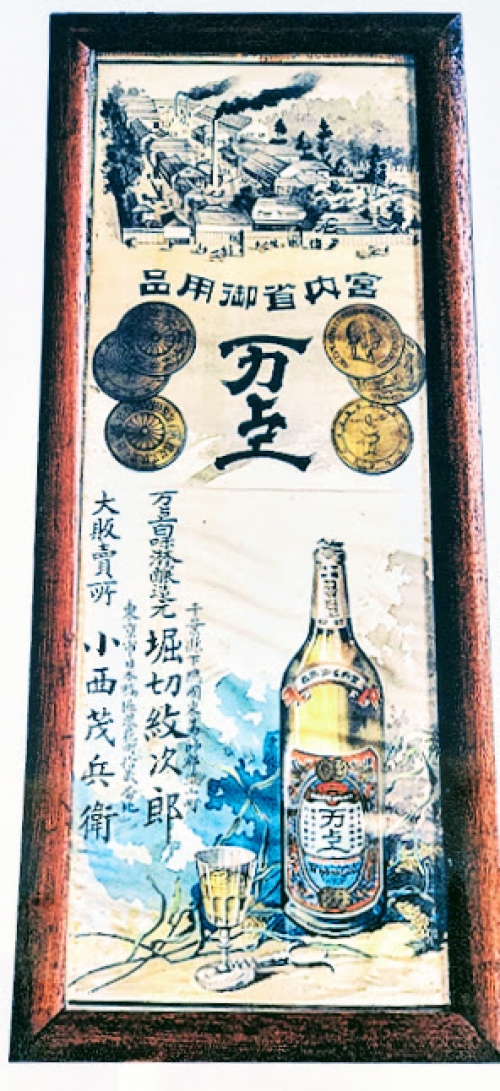 宮内省御用品
万上
千葉縣下總國東葛飾郡流山町
万上白味淋醸造元 堀切紋次郎
東京市日本橋區
大販賣所 小西茂兵衛
万上